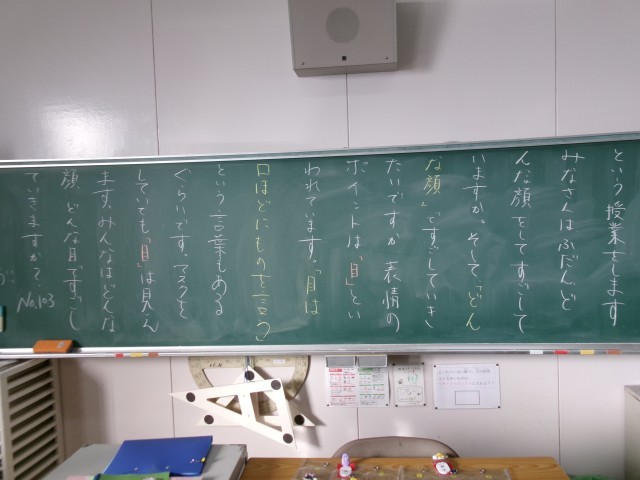 という授業をします
みなさんはふだんど
んな顔をしてすごして
いますか。そして「どん
な顔」ですごしていき
たいですか 表情の
ポイントは「目」とい
われています。「目は
口ほどにものを言う」
という言葉もある
ぐらいです。マスクを
していても「目」は見え
ます。みんなはどんな
顔 どんな目ですごし
ていきますか？
No.103